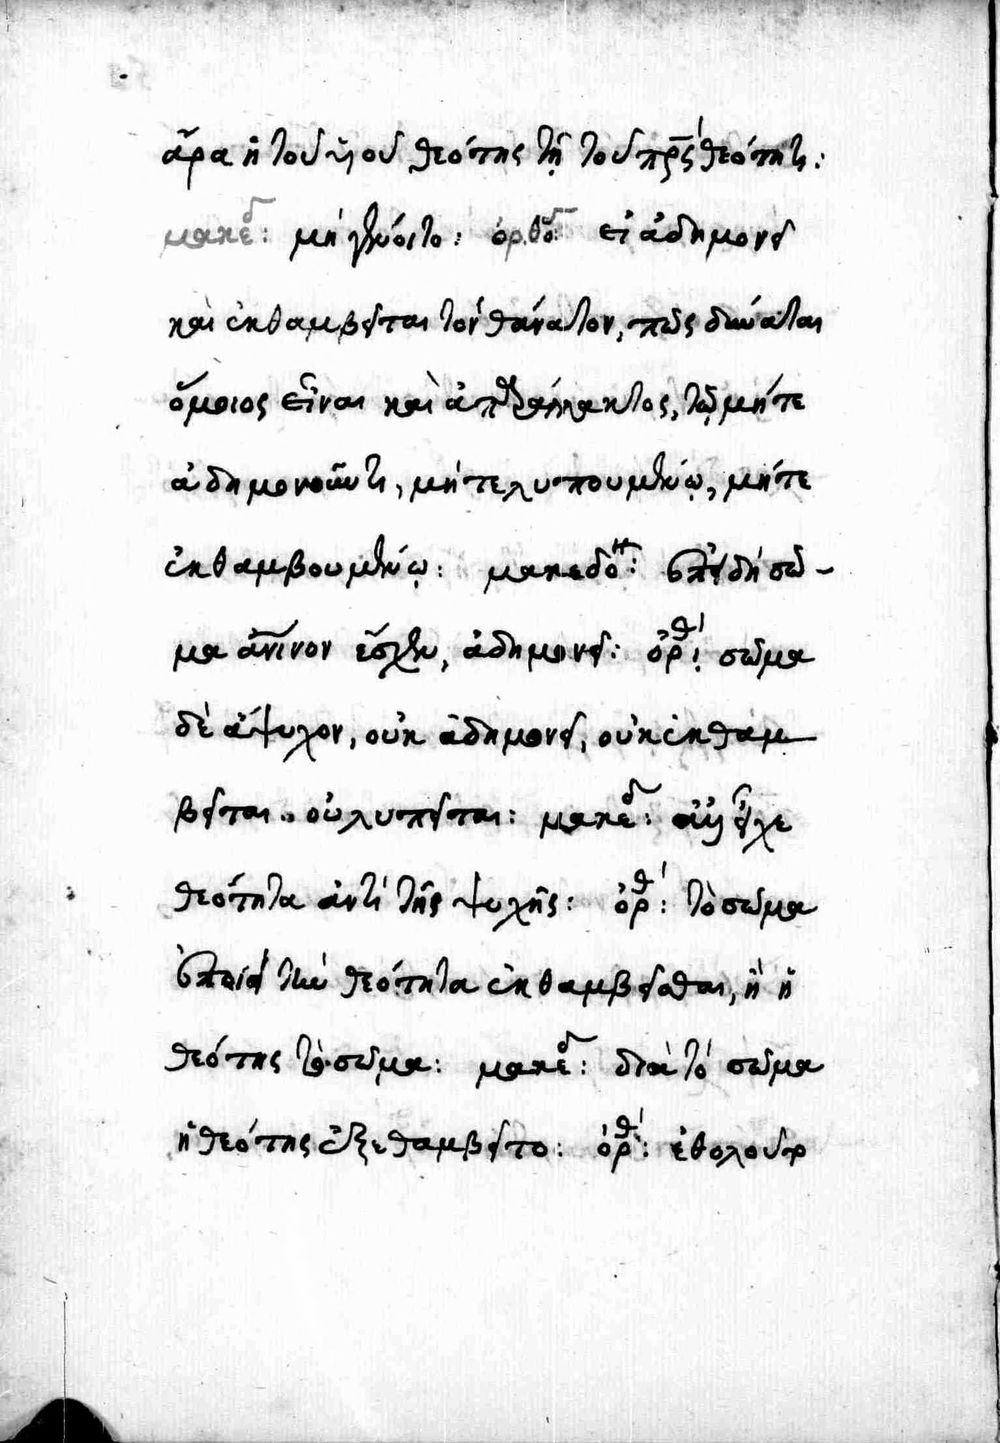 ἆρα ἡ τοῦ υἱοῦ θεότης τῇ τοῦ πρς θεότητι:
μακεδ: μὴ γένοιτο: ὀρθοδ: εἰ ἀδημονεῖ
καὶ ἐκθαμβεῖται τὸν θάνατον, πῶς δύναται
ὅμοιος εἶναι καὶ ἀπαράλλακτος, τῷ μήτε
ἀδημονοῦντι, μήτε λυπουμένῳ, μήτε
ἐκθαμβουμένῳ: μακεδο: ἐπειδὴ σῶ-
μα ἀνινον ἔσχεν, ἀδημονεῖ: ὀρθ: σῶμα
δὲ ἄψυχον, οὐκ ἀδημονεῖ, οὐκ ἐκθαμ
βεῖται.. οὐ λυπεῖται: μακεδ: εἶχε
θεότητα ἀντὶ τῆς ψυχῆς: ὀρθ: τὸ σῶμα
ἐποίει τὴν θεότητα ἐκθαμβεῖσθαι, ἢ ἡ
θεότης τὸ σῶμα: μακεδ: διὰ τὸ σῶμα
ἡ θεότης ἐξεθαμβεῖτο: ὀρθ: ἐθολοῦτο